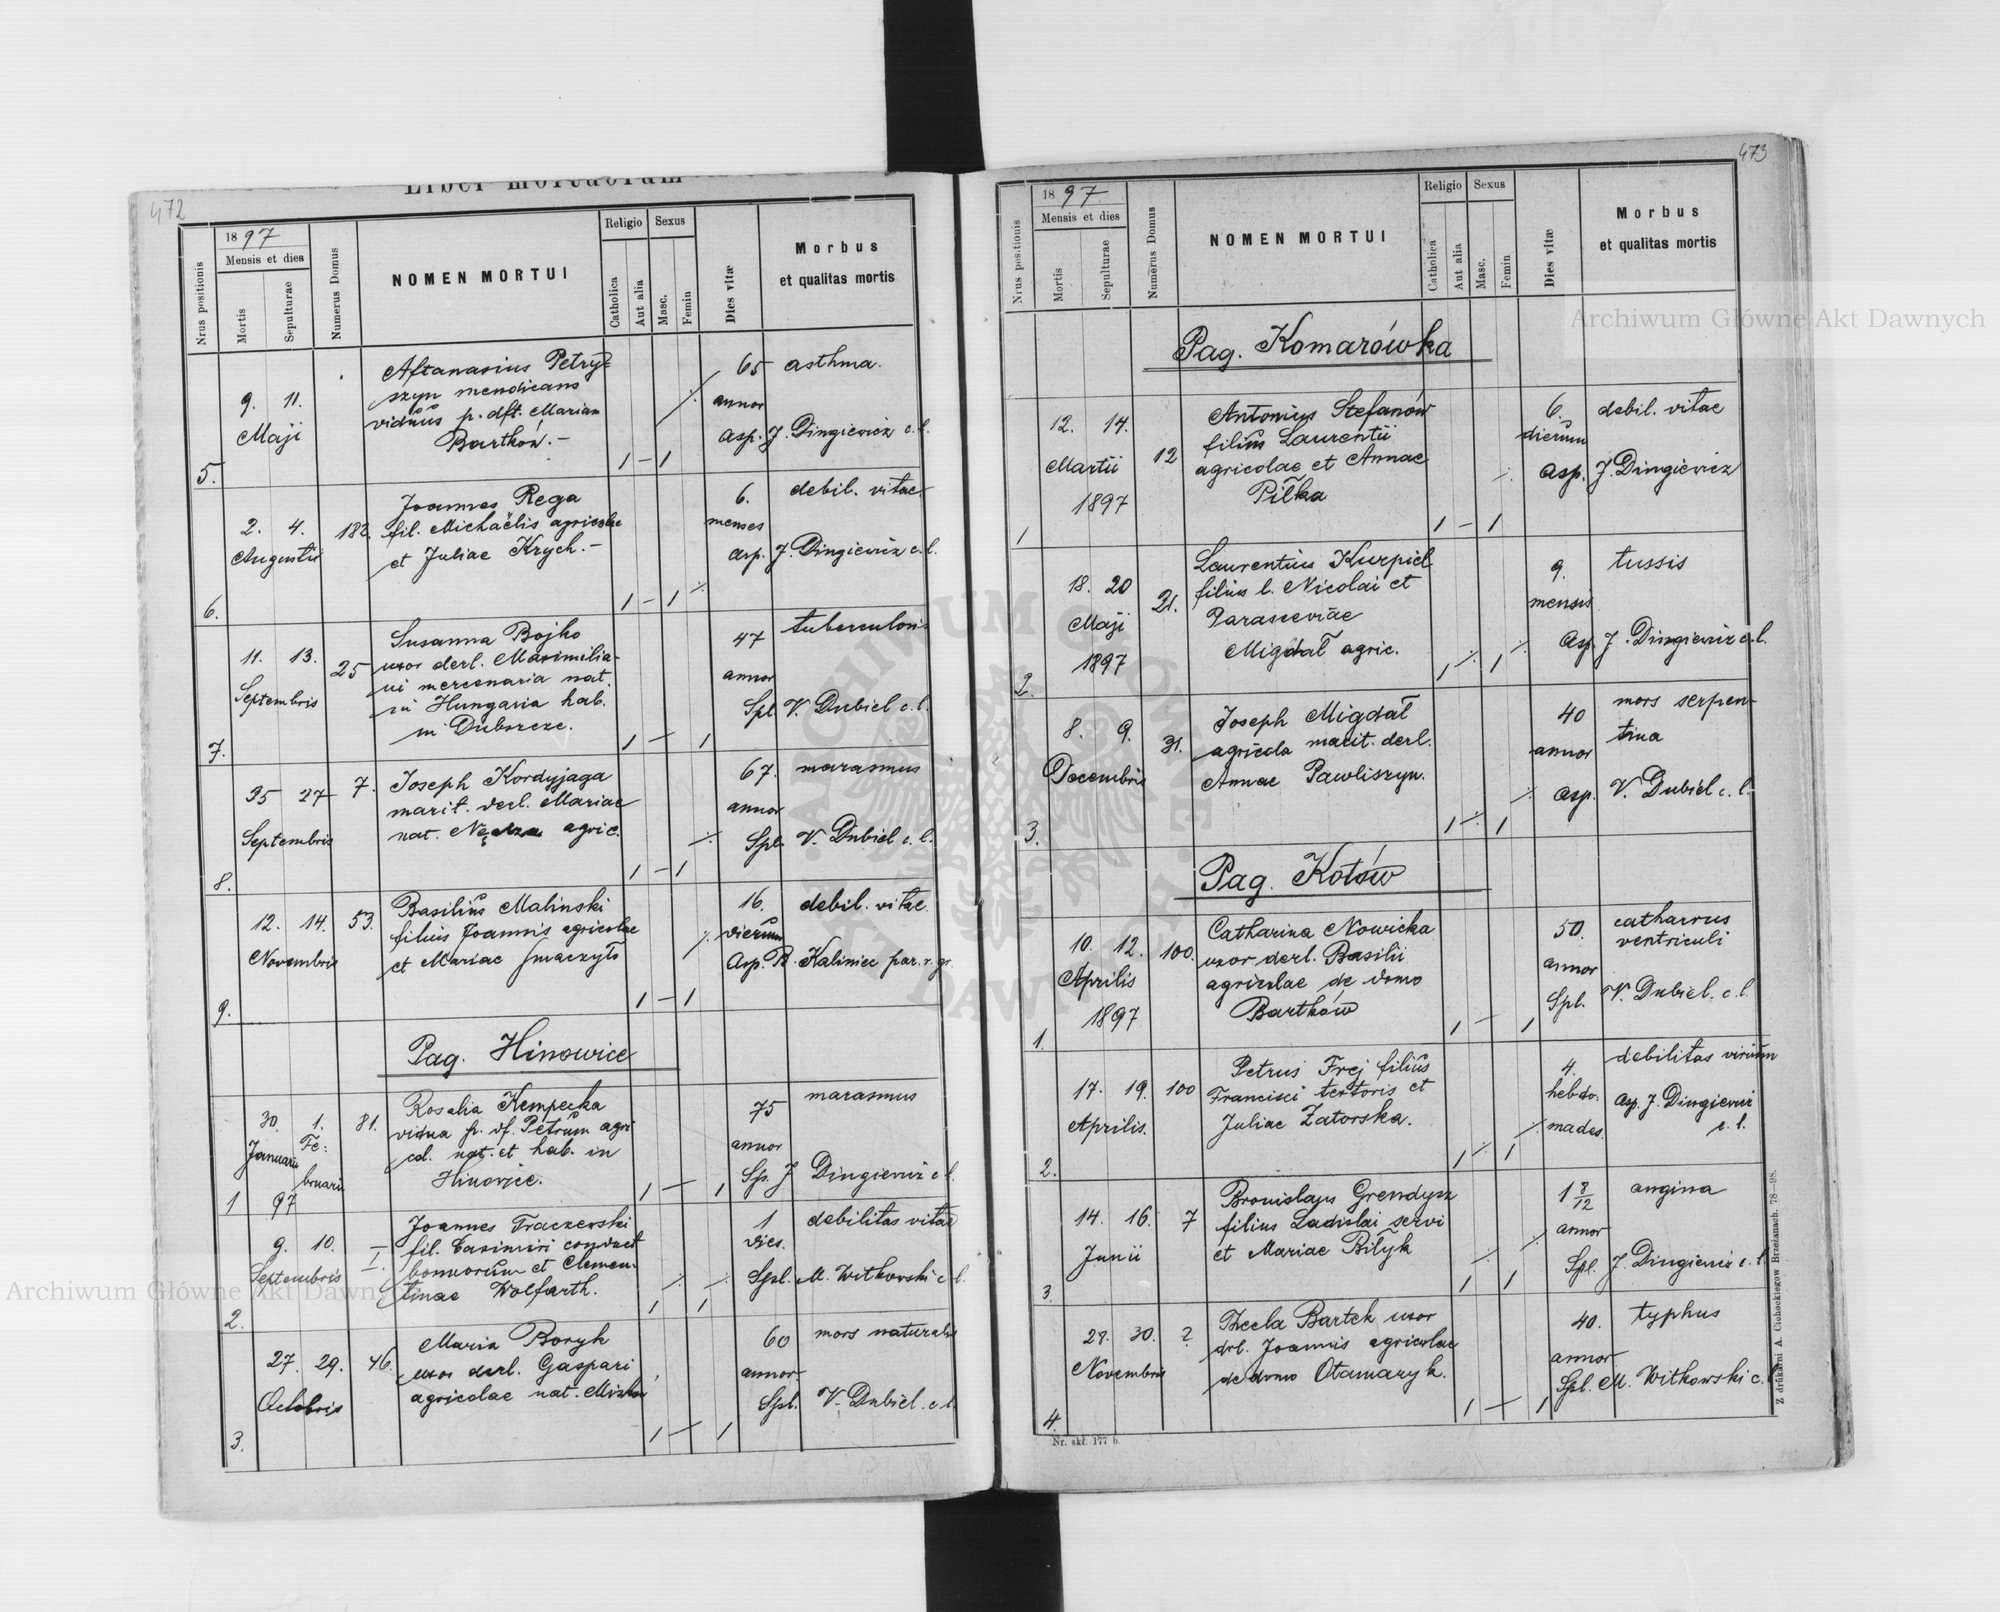 472
Liber mortuorum
Nrus positionis
1897
Mensis et dies
Mortis
Sepulturae
Numerus Domus
NOMEN MORTUI
Religio
Catholica
Aut alia
Sexus
Masc.
Femin
Dies vitæ
Morbus
et qualitas mortis
5.
9. 11.
Maji
Aftanasius Petry=
szyn mendicans
viduus p. dft. Mariam
Bartków.-
1 - 1
65
annor
asthma.
Asp. J. Dingiewicz c. l.
6.
2. 4.
Augusti
182.
Joannes Rega
fil. Michaëlis agricolae
et Juliae Krych.-
1 - 1
6.
menses
debil. vitae
Asp. J. Dingiewicz c. l.
7.
11. 13.
Septembris
25
Susanna Bojko
uxor derl. Maximilia-
ni mercenaria nat.
in Hungaria hab.
in Dubszcze.
1 - 1
47
annor
tuberculosis
Spl. V. Dubiel c. l.
8.
25 27
Septembris
7.
Joseph Kordyjaga
marit. derl. Mariae
nat. Nędza agric.
1 - 1
67.
annor
marasmus
Spl. V. Dubiel c. l.
9.
12. 14.
Novembris
53.
Basilius Malinski
filius Joannis agricolae
et Mariae Smaczyło
1 - 1
16.
dierum
debil. vitae
Asp. B. Kaliniec par. r. gr.
Pag. Hinowice
1
30. 1.
Januarii Fe:
bruarii
97
81.
Rosalia Kempecka
vidua p. df. Petrum agri
col. nat. et hab. in
Hinowice.
1 - 1
75
annor
marasmus
Sp. J Dingiewicz c l.
2.
9. 10.
Septembris
I.
Joannes Traczewski
fil. Casimiri conduct
bonnorum et Clemen-
tinae Wolfarth.
1 1
1
dies.
debilitas vitae
Spl. M. Witkowski c l.
3.
27. 29.
Octobris
46.
Maria Boryk
uxor derl. Gaspari
agricolae nat.
1 - 1
60
annor
mors naturalis
Spl. V. Dubiel. c l.
473
Nrus positionis
1897
Mensis et dies
Mortis
Sepulturae
Numerus Domus
NOMEN MORTUI
Religio
Catholica
Aut alia
Sexus
Masc.
Femin
Dies vitæ
Morbus
et qualitas mortis
Pag. Komarówka
1
12. 14.
Martii
1897
12
Antonius Stefanów
filius Laurentii
agricolae et Annae
Piłka
1 - 1
6.
dierum
debil. vitae
Asp. J. Dingiewicz
2.
18. 20
Maji
1897
21.
Laurentius Kurpiel
filius l. Nicolai et
Parasceviae
Migdał agric.
1 1
9.
mensis
tussis
Asp J. Dingiewicz c. l.
3.
8. 9.
Decembris
31.
Joseph Migdał
agricola marit. derl.
Annae Pawliszyn.
1 1
40
annor
mors serpen-
tina
Asp. V. Dubiel c. l.
Pag. Kotów
1.
10. 12.
Aprilis
1897
100.
Catharina Nowicka
uxor derl. Basilii
agricolae de domo
Bartków
1 - 1
50.
annor
catharrus
ventriculi
Spl. V. Dubiel. c. l.
2.
17. 19.
Aprilis.
100
Petrus Frej filius
Francisci textoris et
Juliae Zatorska.
1 1
4.
hebdo:
mades.
debilitas virium
Asp. J. Dingiewicz
c. l.
3.
14. 16.
Junii
7
Bronislaus Grendysz
filius Ladislai servi
et Mariae Bilyk
1 1
1 8/12
annor
angina
Spl. J. Dingiewicz c. l.
4.
28. 30.
Novembris
2
Thecla Bartek uxor
drl. Joannis agricolae
de domo Otamaryk.
1 - 1
40.
annor
typhus
Spl. M. Witkowski c. l
Nr. skł. 177 b.
Z drukarni A. Cichockiegow Brzeżanach. 78—98.
Archiwum Główne Akt Dawnych
Archiwum Główne Akt Dawnych
ARCHIWUM GŁÓWNE AKT DAWNYCH